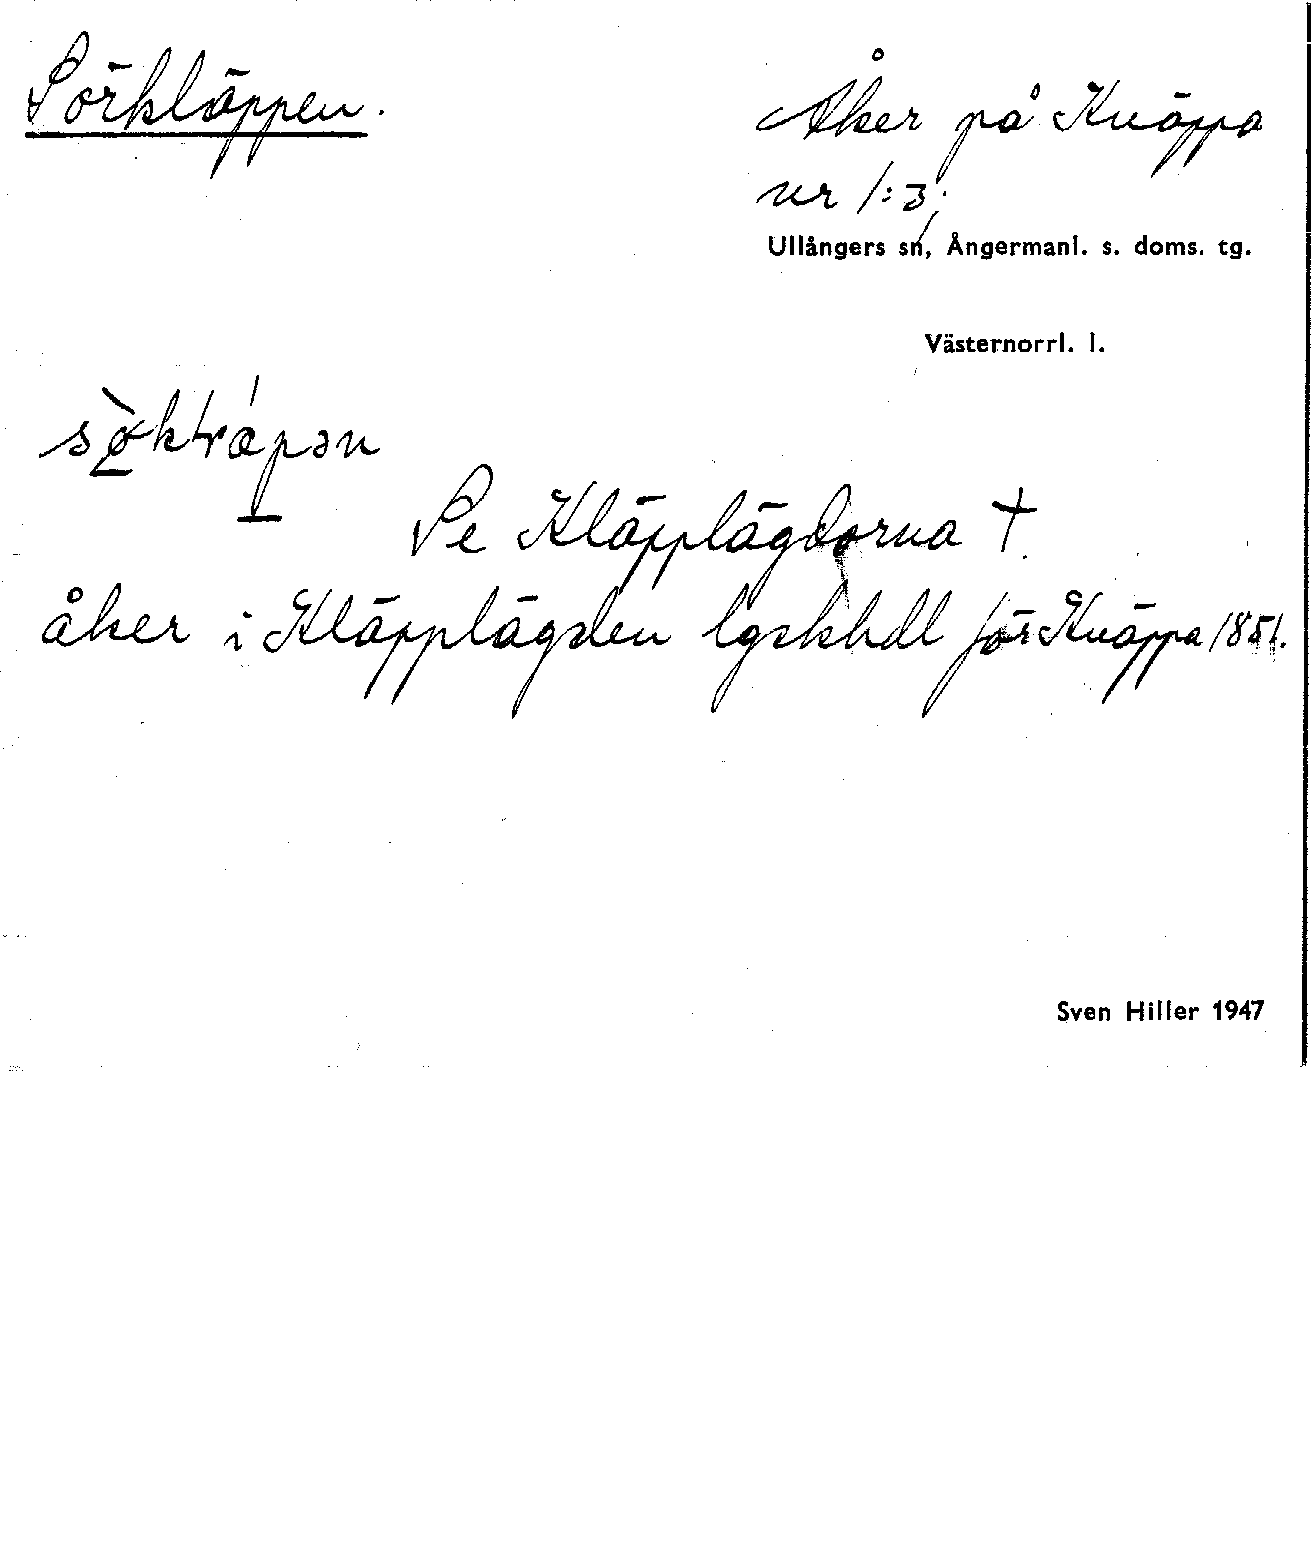 Sörkläppen.
Åker på Knäppa
nr 1:3,
Ullångers sn, Ångermanl. s. doms. tg.
Västernorrl. l.
Se Kläpplägdorna †
åker i Kläpplägden lgskhdl för Knäppa 1851.
Sven Hiller 1947